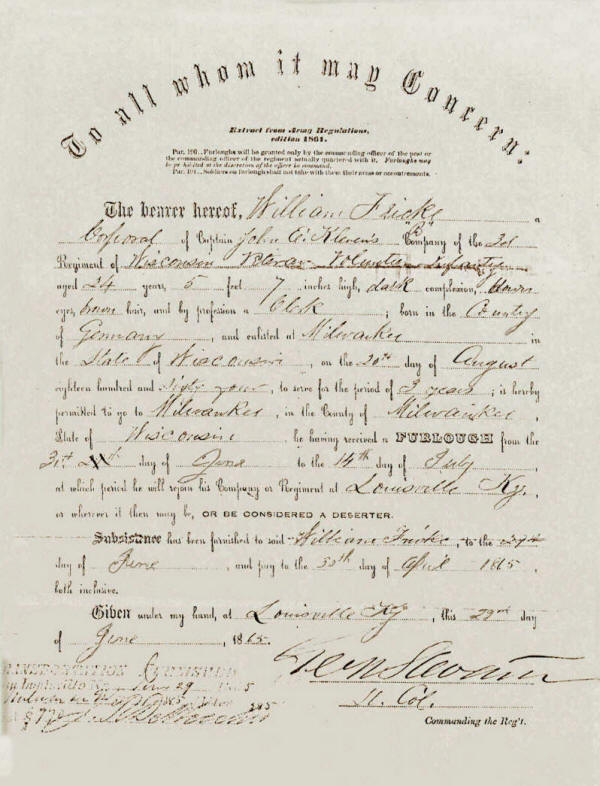 To all whom it may Concern:
Extract from Army Regulations,
edition 1861.
Par. 190.. Furloughs will be granted only by the commanding officer of the post or
the commanding officer of the regiment actually quartered with it. Furloughs may
be prohibited at the discretion of the officer in command.
Par. 191.. Soldiers on furlough shall not take with them their arms or accoutrements.
The bearer hereof, William Fricke a
Corporal of Captain John "B" Company of the
Regiment of Wisconsin Volunteer Infantry
aged 24 years, 5 feet 7 inches high, dark complexion, brown
eyes, brown hair, and by profession a Clerk; born in the Country
of Germany, and enlisted at Milwaukee in
the State of Wisconsin, on the 20th day of August
eighteen hundred and sixty four, to serve for the period of 3 years; is hereby
permitted to go to Milwaukee, in the County of Milwaukee,
State of Wisconsin he having received a FURLOUGH from the
day of June to the 14th day of July
at which period he will rejoin his Company or Regiment at Louisville Ky.,
or wherever it then may be, OR BE CONSIDERED A DESERTER.
Subsistence has been furnished to said William Fricke, to the
day of June, and pay to the 30th day of April 1865,
both inclusive.
Given under my hand, at Louisville Ky, this 29 day
of June, 1865.
Lt. Col.
Commanding the Reg't.